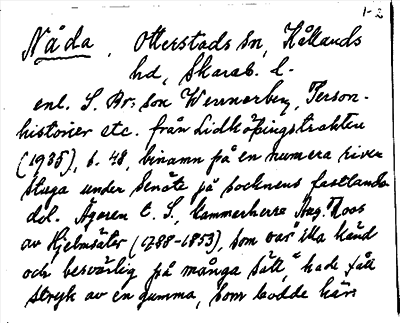 1-2
Nåda, Otterstads sn, Kållands
hd, Skarab. l.
enl. S. Br:son Wennerberg, Person-
historier etc. från Lidköpingstrakten
(1935), s. 48, binamn på en numera riven
stuga under Senäte på socknens fastlands-
del. Ägaren t. S., kammarherre Aug. Koos
av Hjelmsäter (1788-1853), som var "illa känd
och besvärlig på många sätt", hade fått
stryk av en gumma, som bodde här.